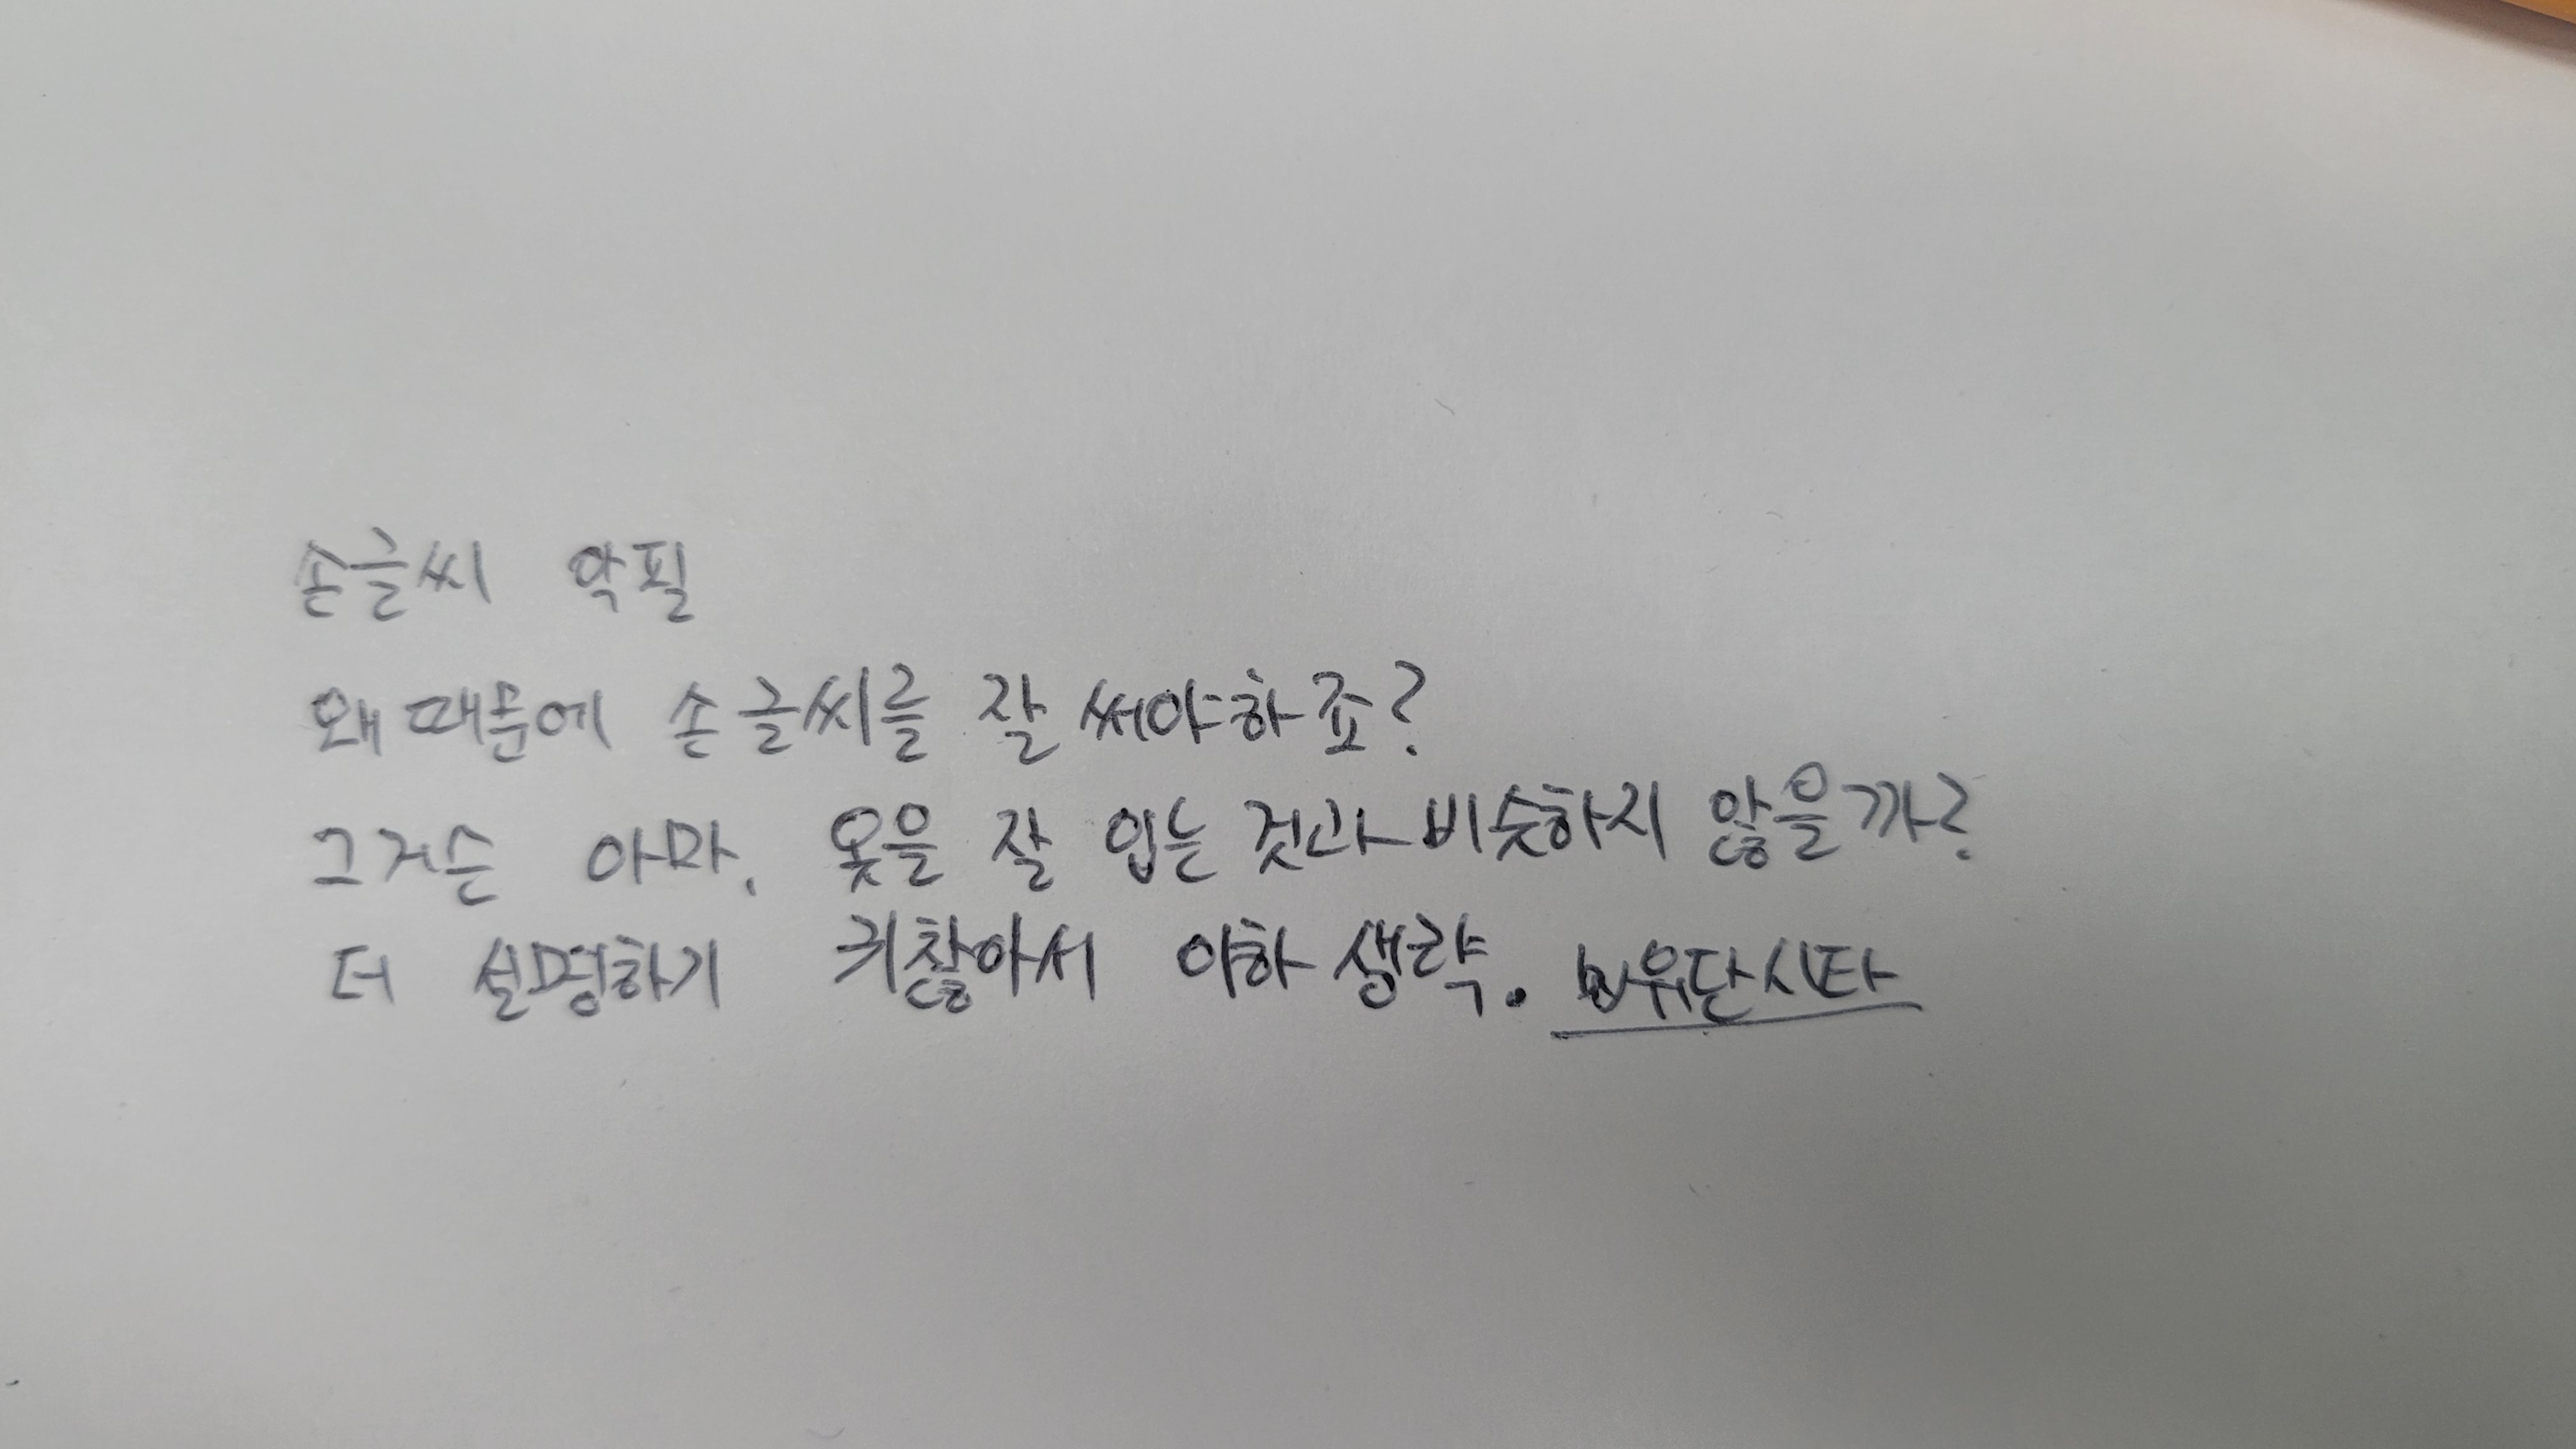 손글씨 악필
왜때문에 손글씨를 잘 써야하죠?
그거슨 아마, 옷을 잘 입는 것과 비슷하지 않을까?
더 설명하기 귀찮아서 이하 생략.